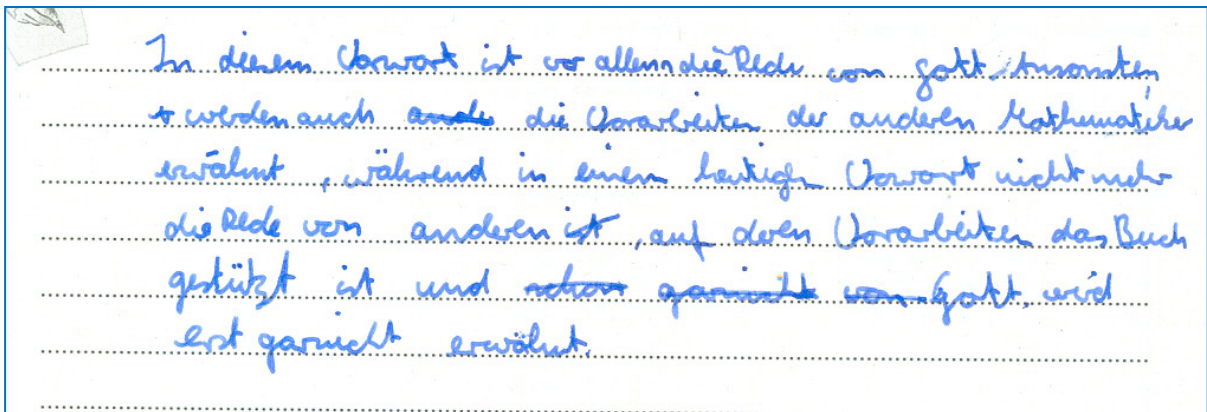 In diesem Vorwort ist vor allem die Rede von gott. Ansonsten
werden auch die Vorarbeiten der anderen Mathematiker
erwähnt, während in einem heutigen Vorwort nicht mehr
die Rede von anderen ist, auf deren Vorarbeiten das Buch
gestützt ist und Gott wird
erst garnicht erwähnt.